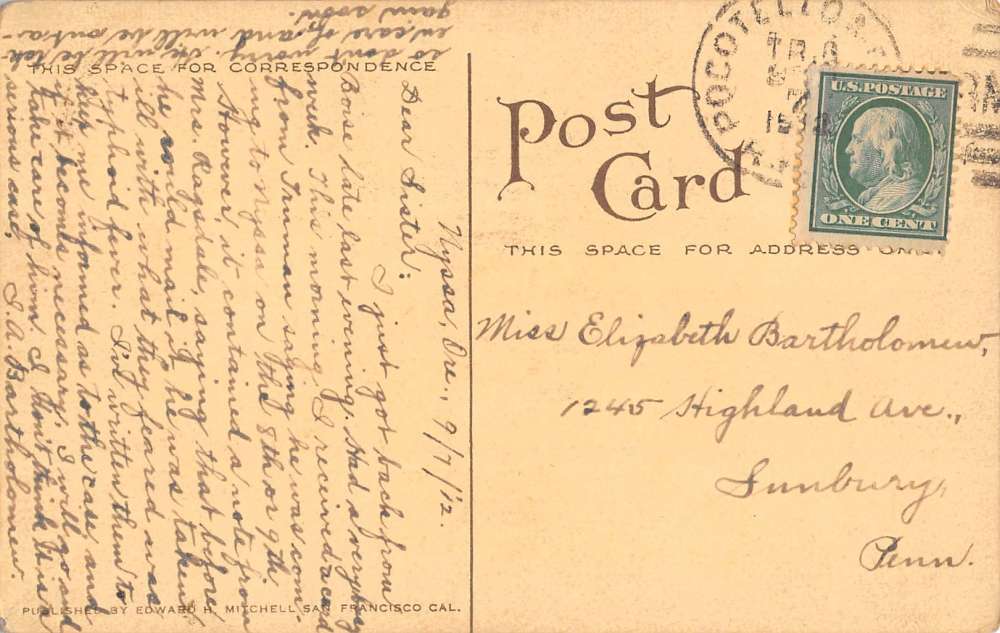 THIS SPACE FOR CORRESPONDENCE
Nyssa, Ore., 9/7/'12.
Dear Sister:
I just got back from
Boise late last evening. Had a very busy
week. This morning I received a card
from Truman saying he was com-
ing to Nyssa on the 8th or 9th.
Howver, it contained a note from
Mrs. Ragsdale, saying that before
he could mail it, he was taken
ill with what they feared was
typhoid fever. I've written them to
keep me informed as to the case, and
if it becomes necessary, I will go and
take care of him. I don't think it is a
serious case,
J. A. Bartholomew.
so don't worry, will be tak-
en care of and will be out a-
gain soon.
PUBLISHED BY EDWARD H. MITCHELL SAN FRANCISCO CAL.
Post
Card
THIS SPACE FOR ADDRESS
POCOTELLO
TR. 8
U.S. POSTAGE
ONE CENT
Miss Elizabeth Bartholomew,
1245 Highland Ave.,
Sunbury,
Penn.